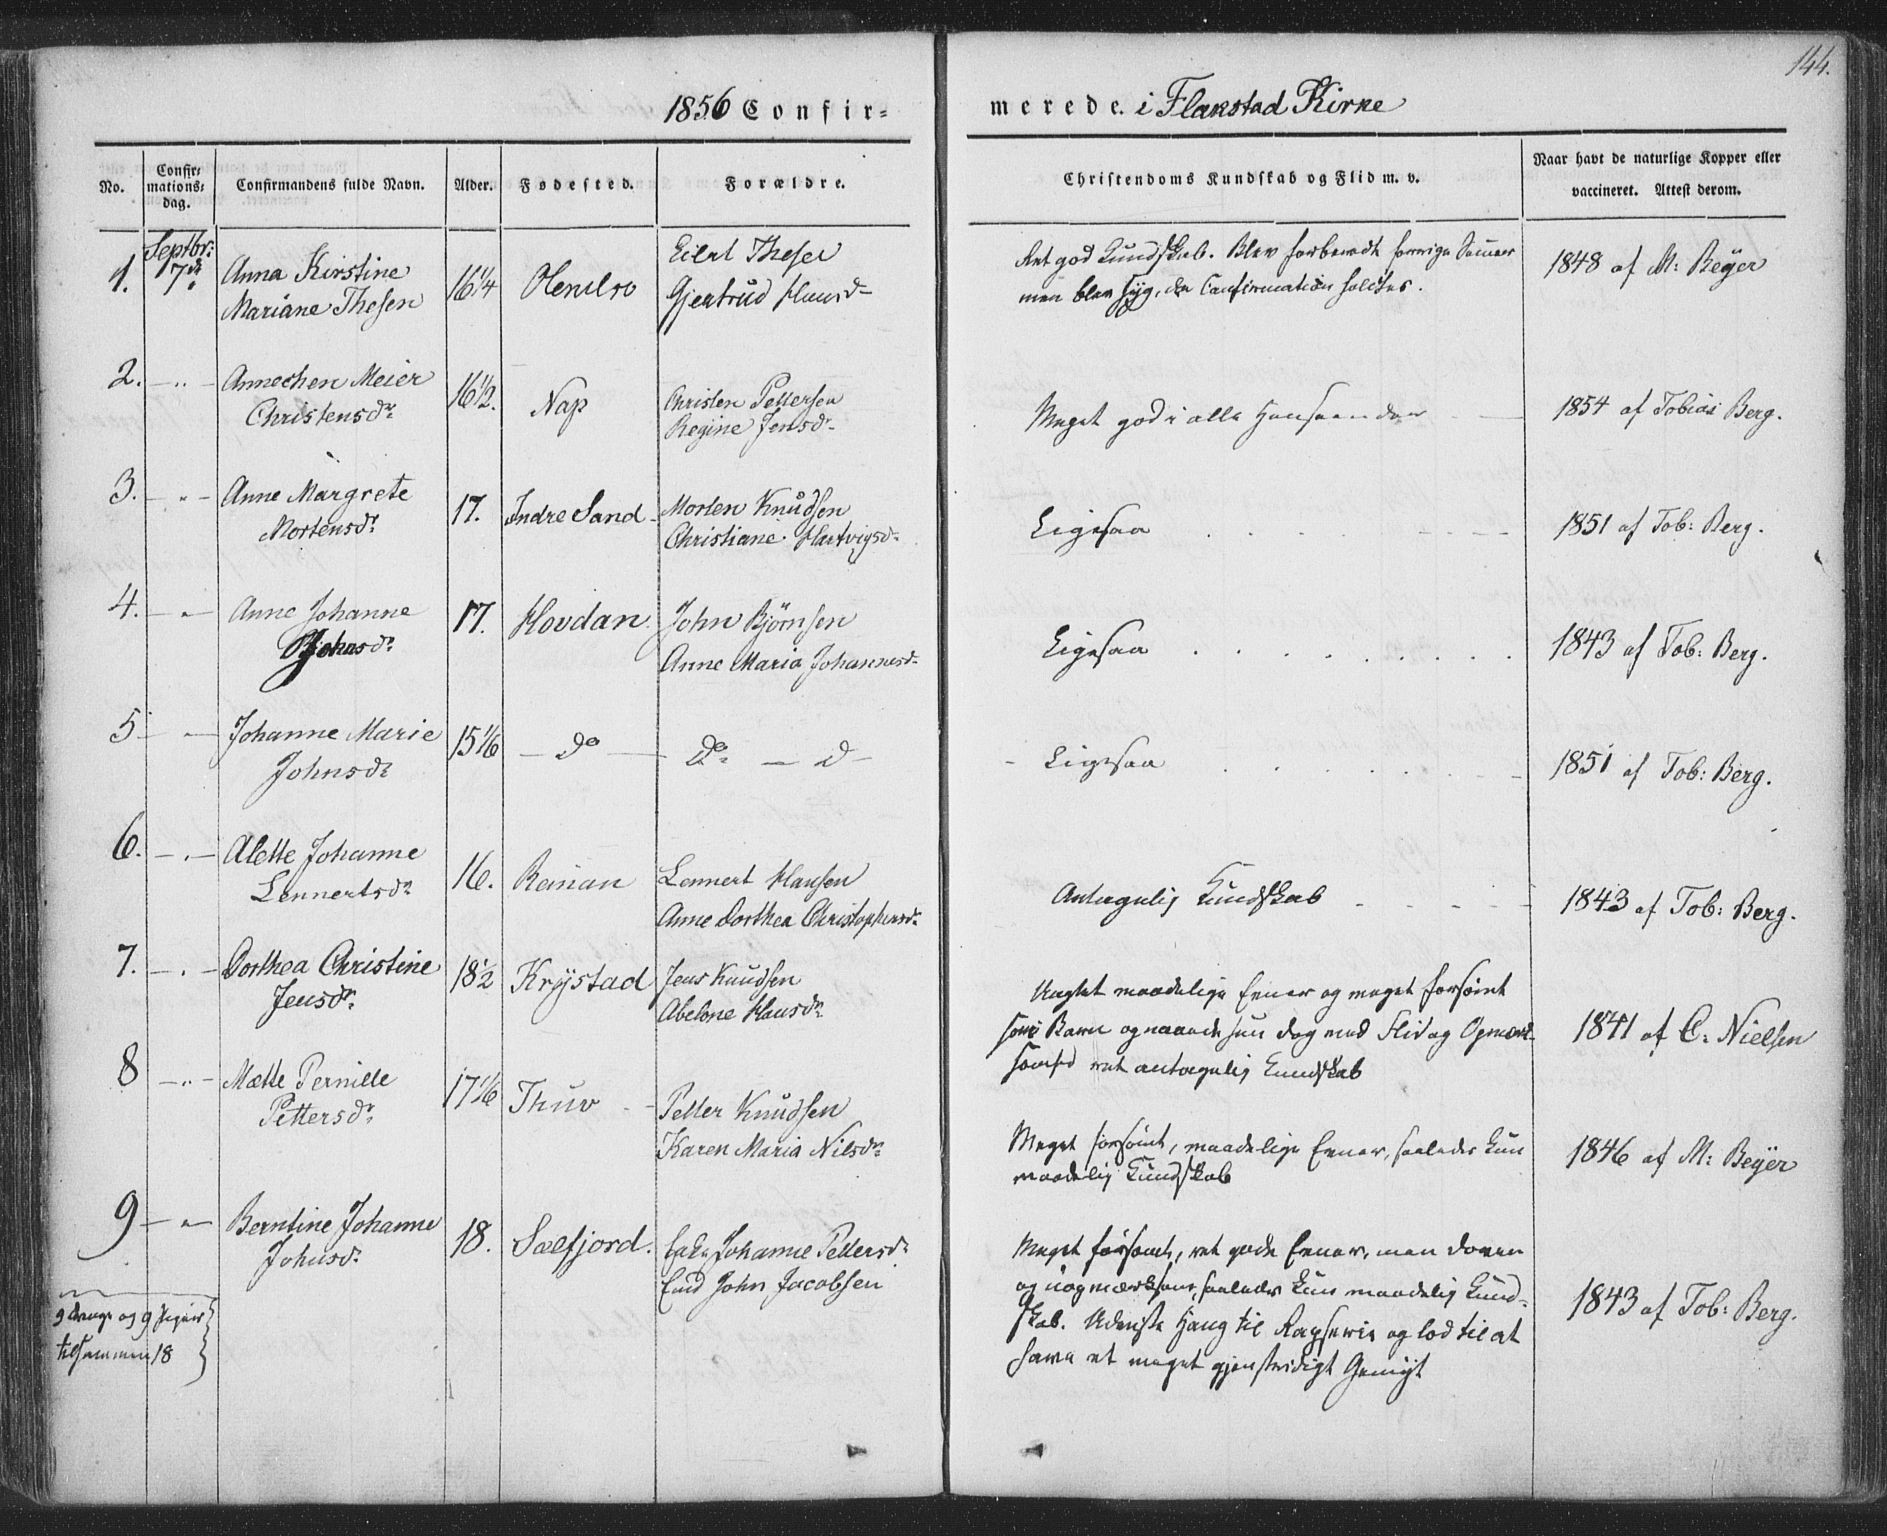 144.
1856 Confir-
merede. i Flakstad Kirke
No.
Confir-
mations-
dag.
Confirmandens fulde Navn.
Alder.
Fødested.
Forældre.
Christendoms Kundskab og Flid m. v.
Naar havt de naturlige Kopper eller
vaccineret. Attest derom.
1. Septbr: 7de Anna Kirstine
Mariane Thesen
16 1/4
Eilert Thesen
Gjertrud Hansd.
Ret god Kundskab. Blev forberedt forrige Sommer
men blev syg, da Confirmation holdtes.
1848 af M: Beyer
2. — „ — Annechen Meier
Christensdr.
16 1/2.
Nap
Christen Pettersen
Regine Jensdr.
Meget god i alle Henseender
1854 af Tobias Berg.
3. — „ — Anne Margrete
Mortensdr.
17.
Indre Sand
Morten Knudsen
Christiane Hartvigsdr.
Ligesaa
1851 af Tob: Berg.
4. — „ — Anne Johanne
Johnsdr.
17.
Hovdan.
John Bjørnsen
Anne Maria Johannesdr.
Ligesaa
1843 af Tob: Berg.
5 — „ — Johanne Marie
Johnsdr.
15 1/6
— do —
Do. — d —
Ligesaa
1851 af Tob: Berg.
6. — „ — Alette Johanne
Lennertsdr.
16.
Lennert Hansen
Anne Dorthea Christophersdr.
Antagelig Kundskab
1843 af Tob: Berg.
7. — „ — Dorthea Christine
Jensdr.
18 1/2
Krystad
Jens Knudsen
Abelone Hansdr.
Meget maadelige Evner og meget forsømt
som Barn og naaede hun dog med Flid og Opmærk-
somhed ret antagelig Kundskab
1841 af C. Nielsen
8 — „ — Mætte Pernille
Pettersdr.
17 1/6
Thuv
Petter Knudsen
Karen Maria Nilsdr.
Meget forsømt, maadelige Evner, saaledes kun
maadelig Kundskab
1846 af M: Beyer
9 — „ — Berntine Johanne
Johnsdr.
18.
Sælfjord.
Johanne Pettersdr.
John Jacobsen
Meget forsømt, ret gode Evner, men doven
og uopmærksom, saaledes kun maadelig Kund-
skab. Udviste Hang til Rapserie og lod til at
have et meget gjenstridigt Gemyt
1843 af Tob: Berg.
9 Drenge og 9 Piger
tilsammen 18